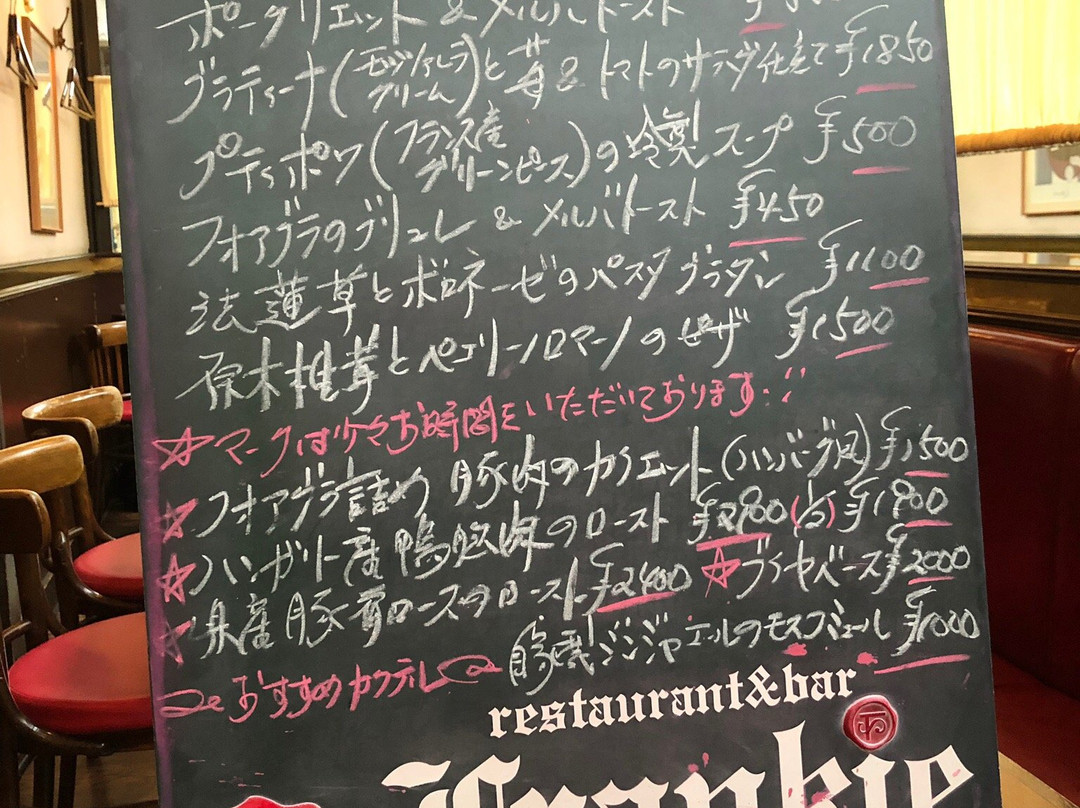 ポークリエット & メルバトースト
ブラティーナ(モッツァレラクリーム)と苺 & トマトのサラダ仕立て ¥1850
プティポワ(フランス産グリーンピース)の冷製スープ ¥500
フォアグラのブリュレ & メルバトースト ¥450
法蓮草とボロネーゼのパスタグラタン ¥1100
原木椎茸とペコリーノロマーノのピザ ¥1500
☆マークは少々お時間をいただいております。
☆フォアグラ詰め 豚肉のカイエット(ハンバーグ風) ¥1500
☆ハンガリー産鴨胸肉のロースト
☆ブイヤベース ¥2000
☆県産豚肩ロースのロースト ¥2400
おすすめカクテル
自家製ジンジャエールのモスコミュール ¥1000
restaurant&bar
Frankie